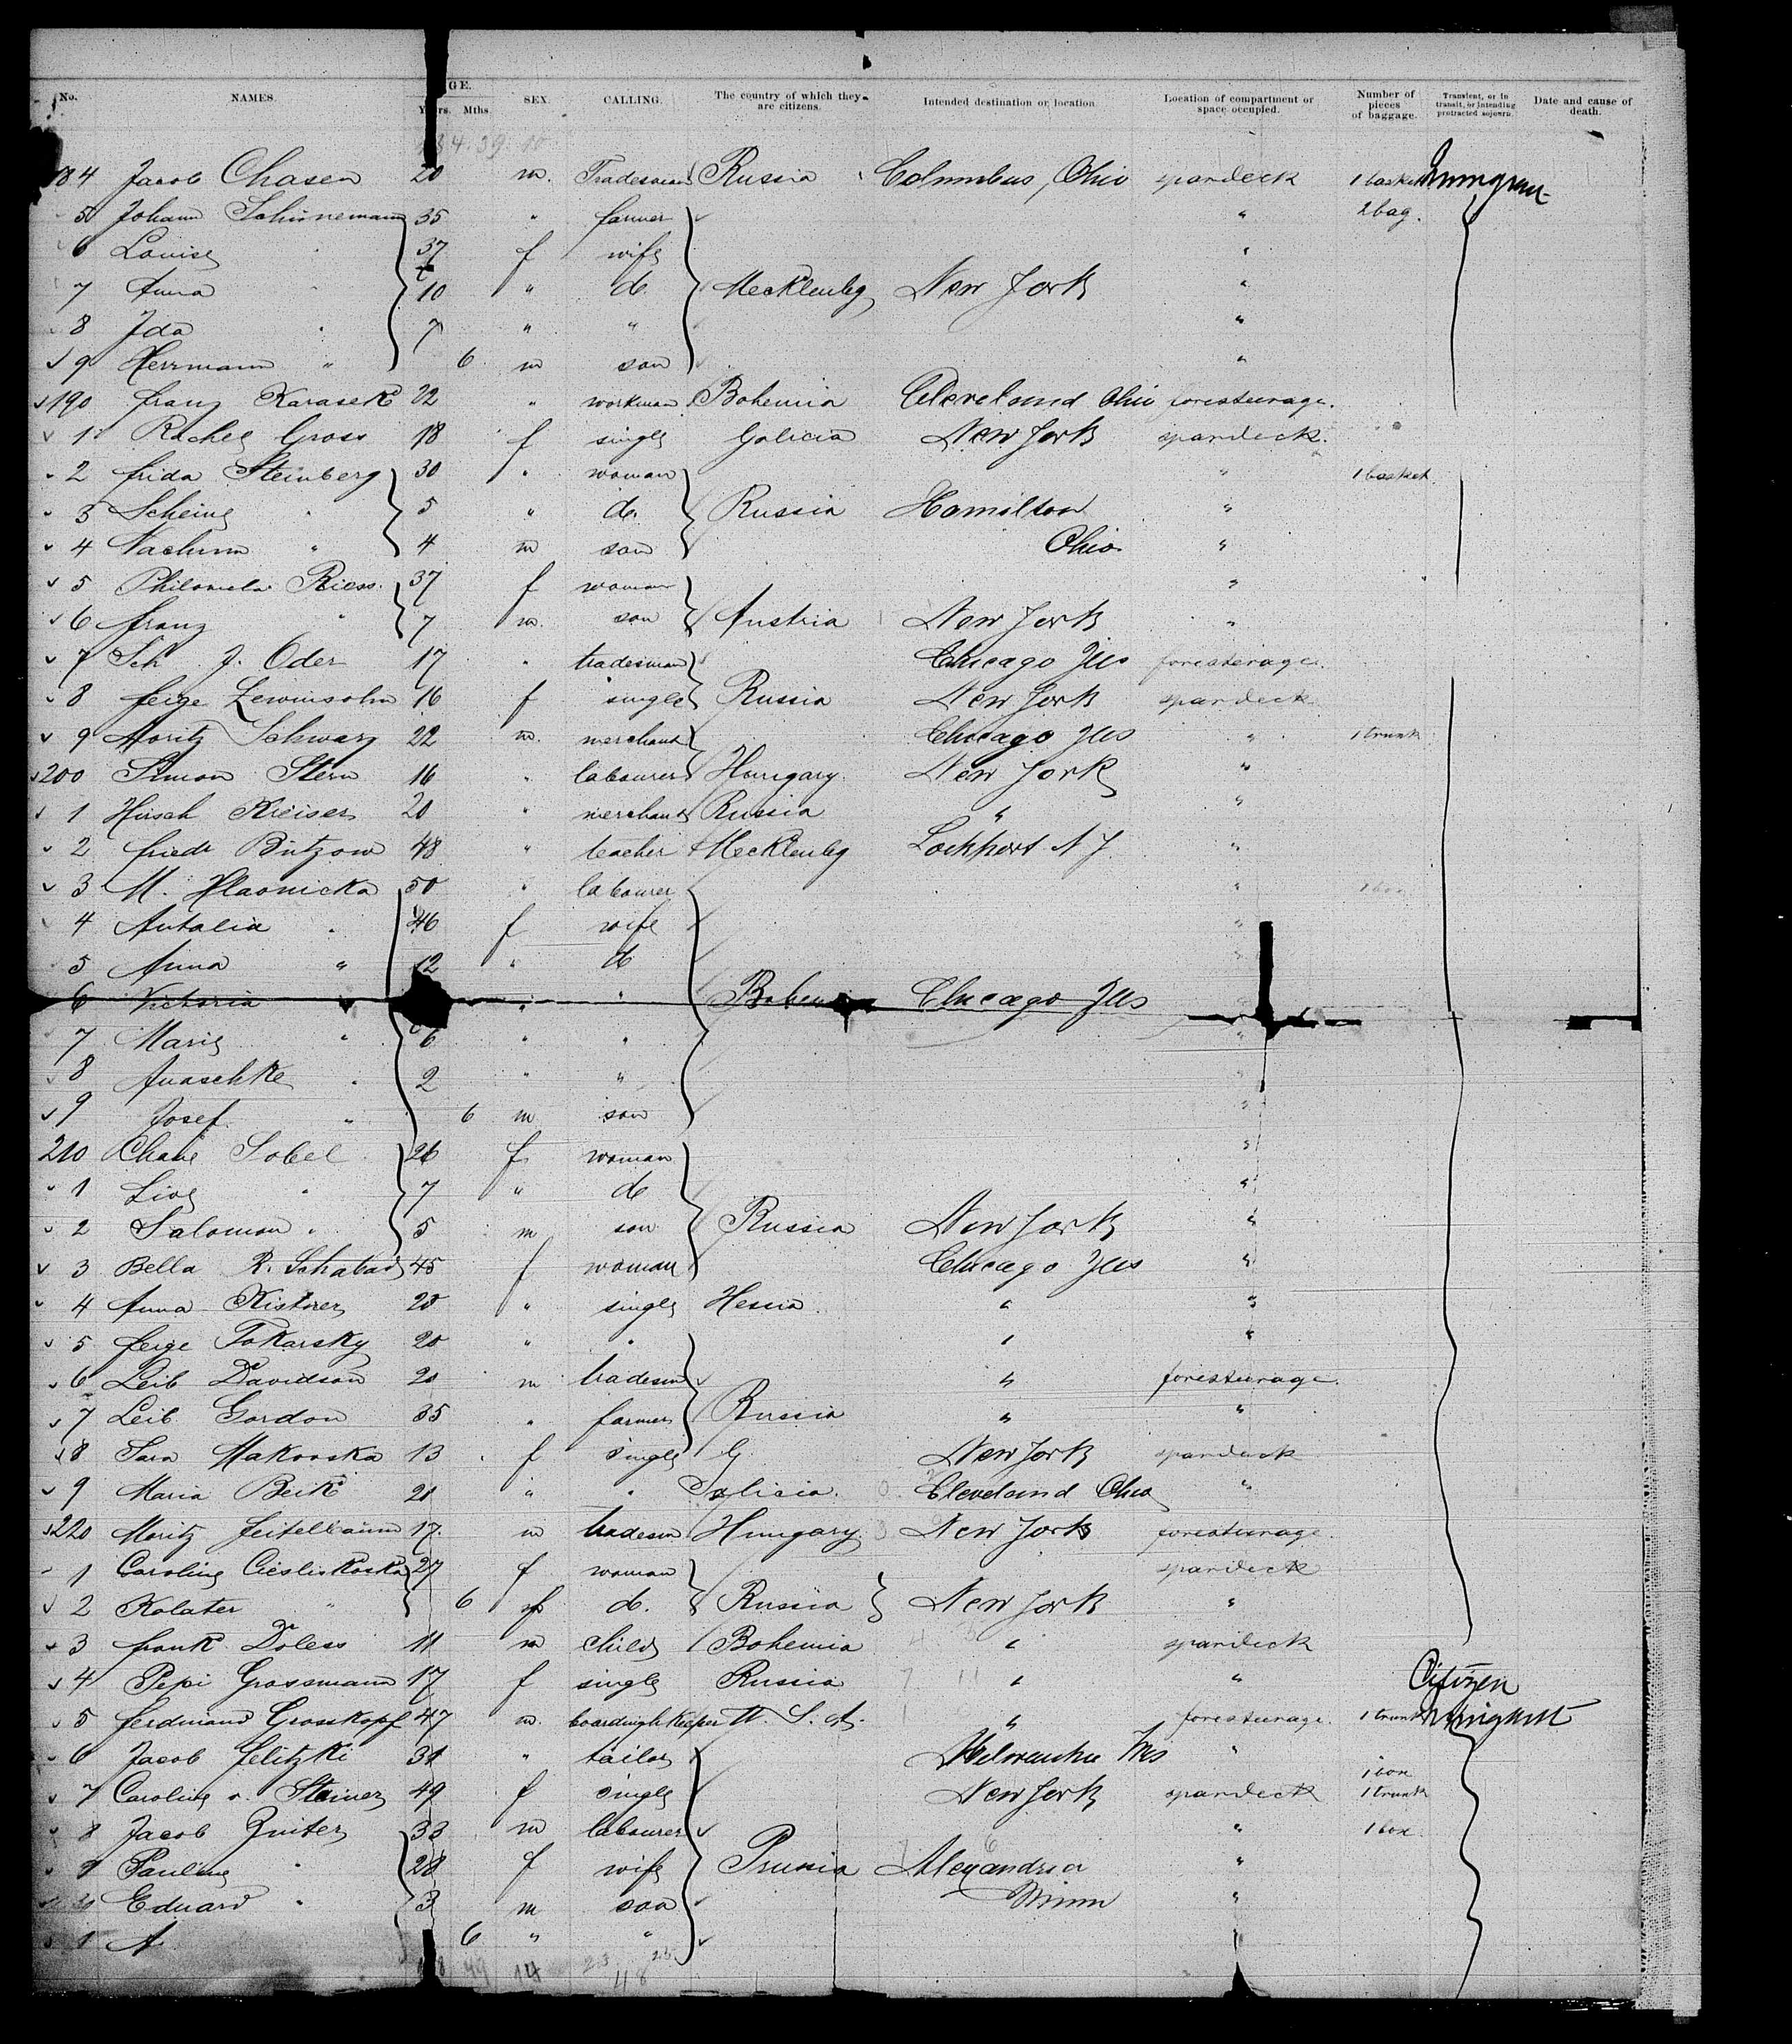 No. NAMES. AGE. Years. Mths. SEX. CALLING. The country of which they are citizens. Intended destination or location. Location of compartment or space occupied. Number of pieces of baggage. Transient, or in transit, or intending protracted sojourn. Date and cause of death.
184 Jacob Chasen 20 m. Tradesman Russia Columbus, Ohio spardeck 1 basket
5 Johann Schünemann 35 " farmer " 2 bag.
6 Louise 37 f wife "
7 Anna 10 " do. Mecklenbg New York "
8 Ida " 7 " " "
9 Herrmann " 6 m son "
190 Franz Karasek 22 " workman Bohemia Cleveland Ohio foresteerage.
1 Rachel Gross 18 f single Galicia New York spardeck.
2 Frida Steinberg 30 " woman " 1 basket.
3 Scheine " 5 " do. Russia Hamilton "
4 Nachum " 4 m son Ohio "
5 Philomela Riess. 37 f woman "
6 Franz " 7 m. son Austria New York "
7 Sch J. Oder 17 " tradesman Chicago Ills foresteerage.
8 Feige Lewinsohn 16 f single Russia New York spardeck
9 Moritz Schwarz 22 m. merchant Chicago Ills " 1 trunk
200 Simon Stern 16 " labourer Hungary. New York "
1 Hirsch Kreiser 20 " merchant Russia " "
2 Friedr Bützow 48 " teacher Mecklenbg Lockport N Y. "
3 M. Hlavnicka 50 " labourer " 1 box
4 Antalia " 46 f wife "
5 Anna " 12 " do "
6 Victoria " " " Chicago Ills
7 Marie " 6 " " "
8 " 2 " " "
9 Josef " 6 m son "
210 Chane Sobel 26 f woman "
1 " 7 " do "
2 Salomon " 5 m son Russia New York "
3 Bella R. Schabad 45 f woman Chicago Ills "
4 Anna 20 " single Hessia. " "
5 Feige Tokarsky 20 " " " "
6 Leib Davidson 20 m tradesm " foresteerage.
7 Leib Gordon 35 " farmer Russia " "
8 Sara Makovska 13 f single New York spardeck
9 Maria Beik 21 " " Galicia. Cleveland Ohio "
220 Moritz Feitelbaum 17. m tradesm Hungary. New York foresteerage
1 Caroline 27 f woman spardeck
2 " 6 f do. Russia New York "
3 Frank Doless 11 m child Bohemia " spardeck
4 Pepi Grossmann 17 f single Russia " " Citizen
5 Ferdinand Grosskopf 47 m. boardinghkeeper U. S. A. " foresteerage. 1 trunk
6 Jacob Jelitzki 31 " tailor Milwaukee Wis "
1 box
7 Caroline v. Steiner 49 f single New York spardeck 1 trunk
8 Jacob 33 m labourer " 1 box.
9 Pauline " 28 f wife Prussia Alexandria "
30 Eduard " 3 m son Minn "
1 A 6 " "